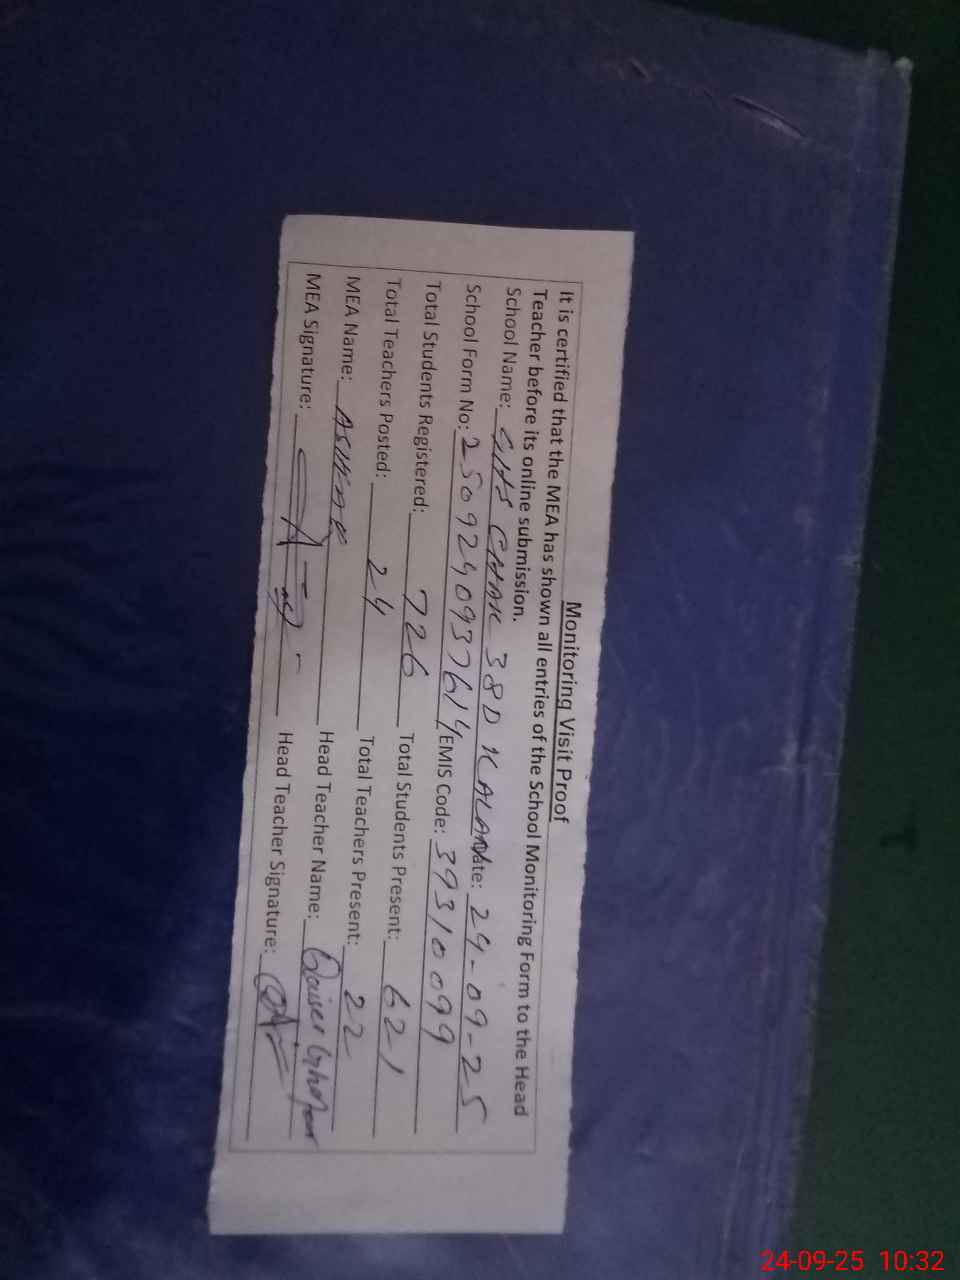 Monitoring Visit Proof
It is certified that the MEA has shown all entries of the School Monitoring Form to the Head
Teacher before its online submission.
School Name: GHS CHAK 38D KALAN Date: 24-09-25
School Form No: 2509240937614 EMIS Code: 39310099
Total Students Registered: 726 Total Students Present: 621
Total Teachers Posted: 24 Total Teachers Present: 22
MEA Name: Head Teacher Name: Qaiser Ghafoor
MEA Signature: Head Teacher Signature:
24-09-25 10:32